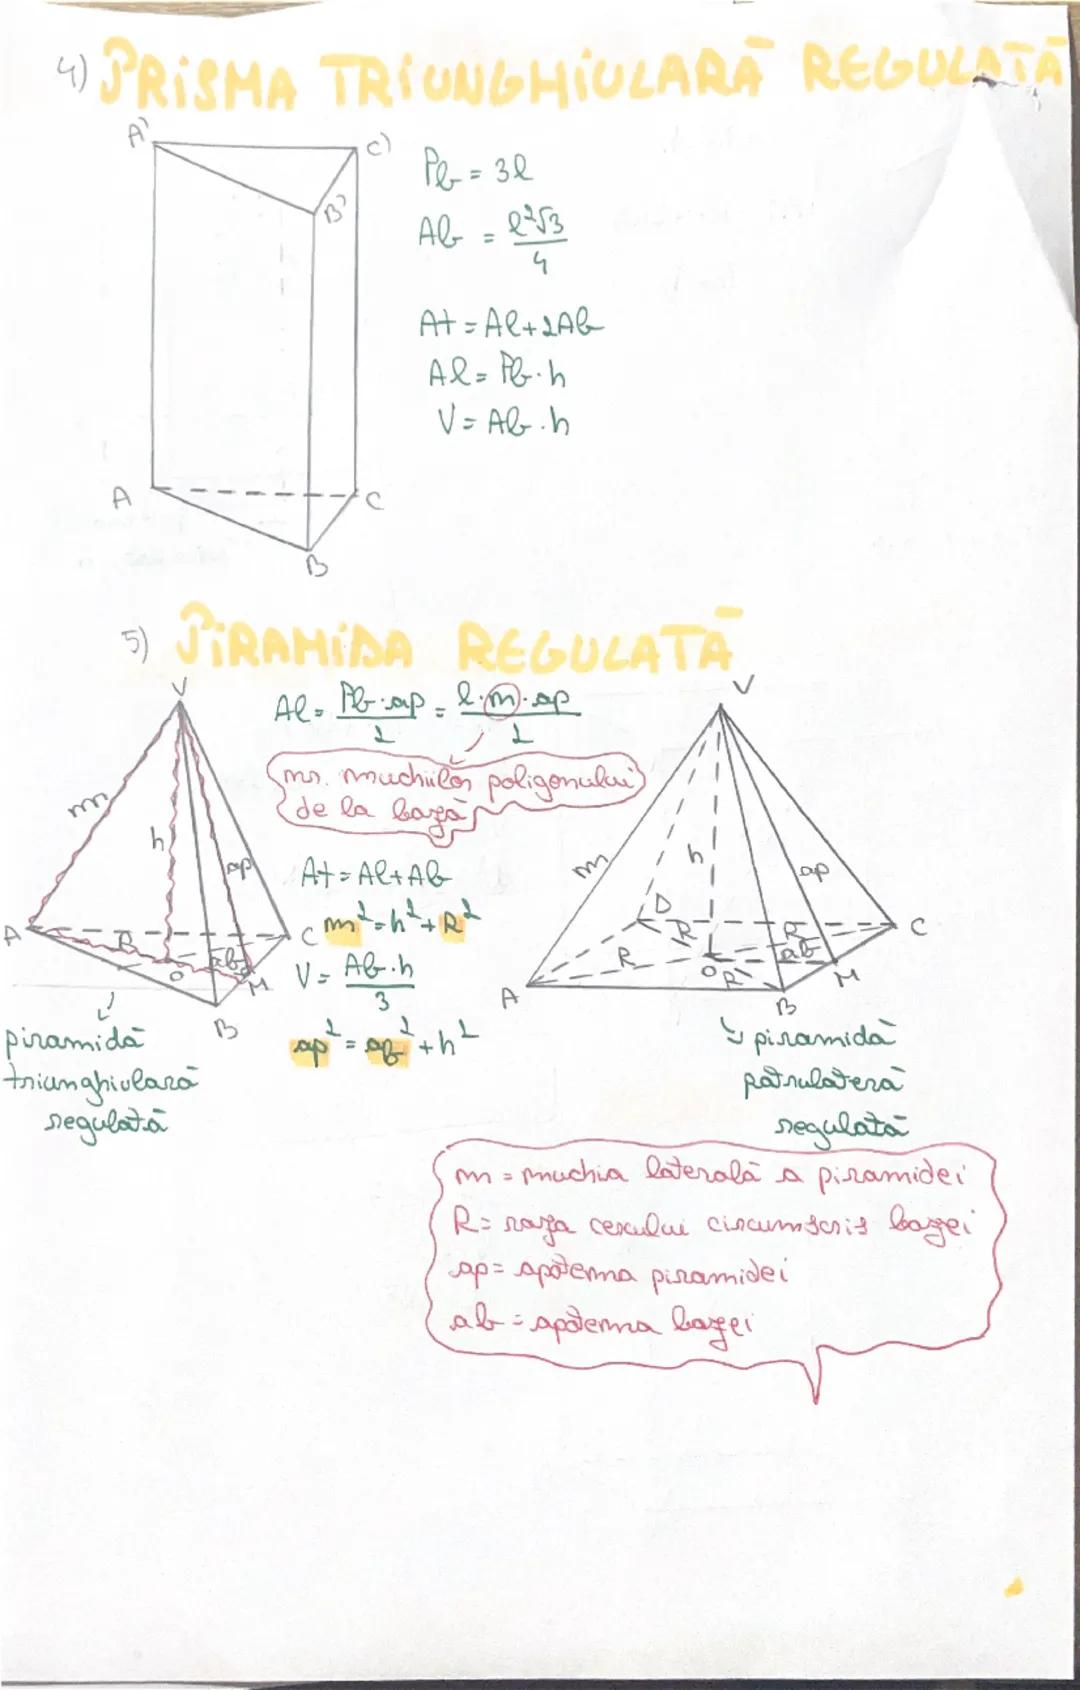 4) PRISMA TRIUNGHIULARĂ REGULATĂ
A' C' B'
Pb = 3l
Ab = l²√3 / 4
At = Al + 2Ab
Al = Pb · h
V = Ab · h
A C B
5) PIRAMIDA REGULATĂ
V
Al = Pb · ap / 2 = l · n · ap / 2
nr. muchiilor poligonului
de la bază
m h ap
At = Al + Ab
m² = h² + R²
V = Ab · h / 3
ap² = ab² + h²
A R O ab M C B
piramidă
triunghiulară
regulată
V
m h ap
D R R C
R O ab M
A R B
piramidă
patrulateră
regulată
m = muchia laterală a piramidei
R = raza cercului circumscris bazei
ap = apotema piramidei
ab = apotema bazei